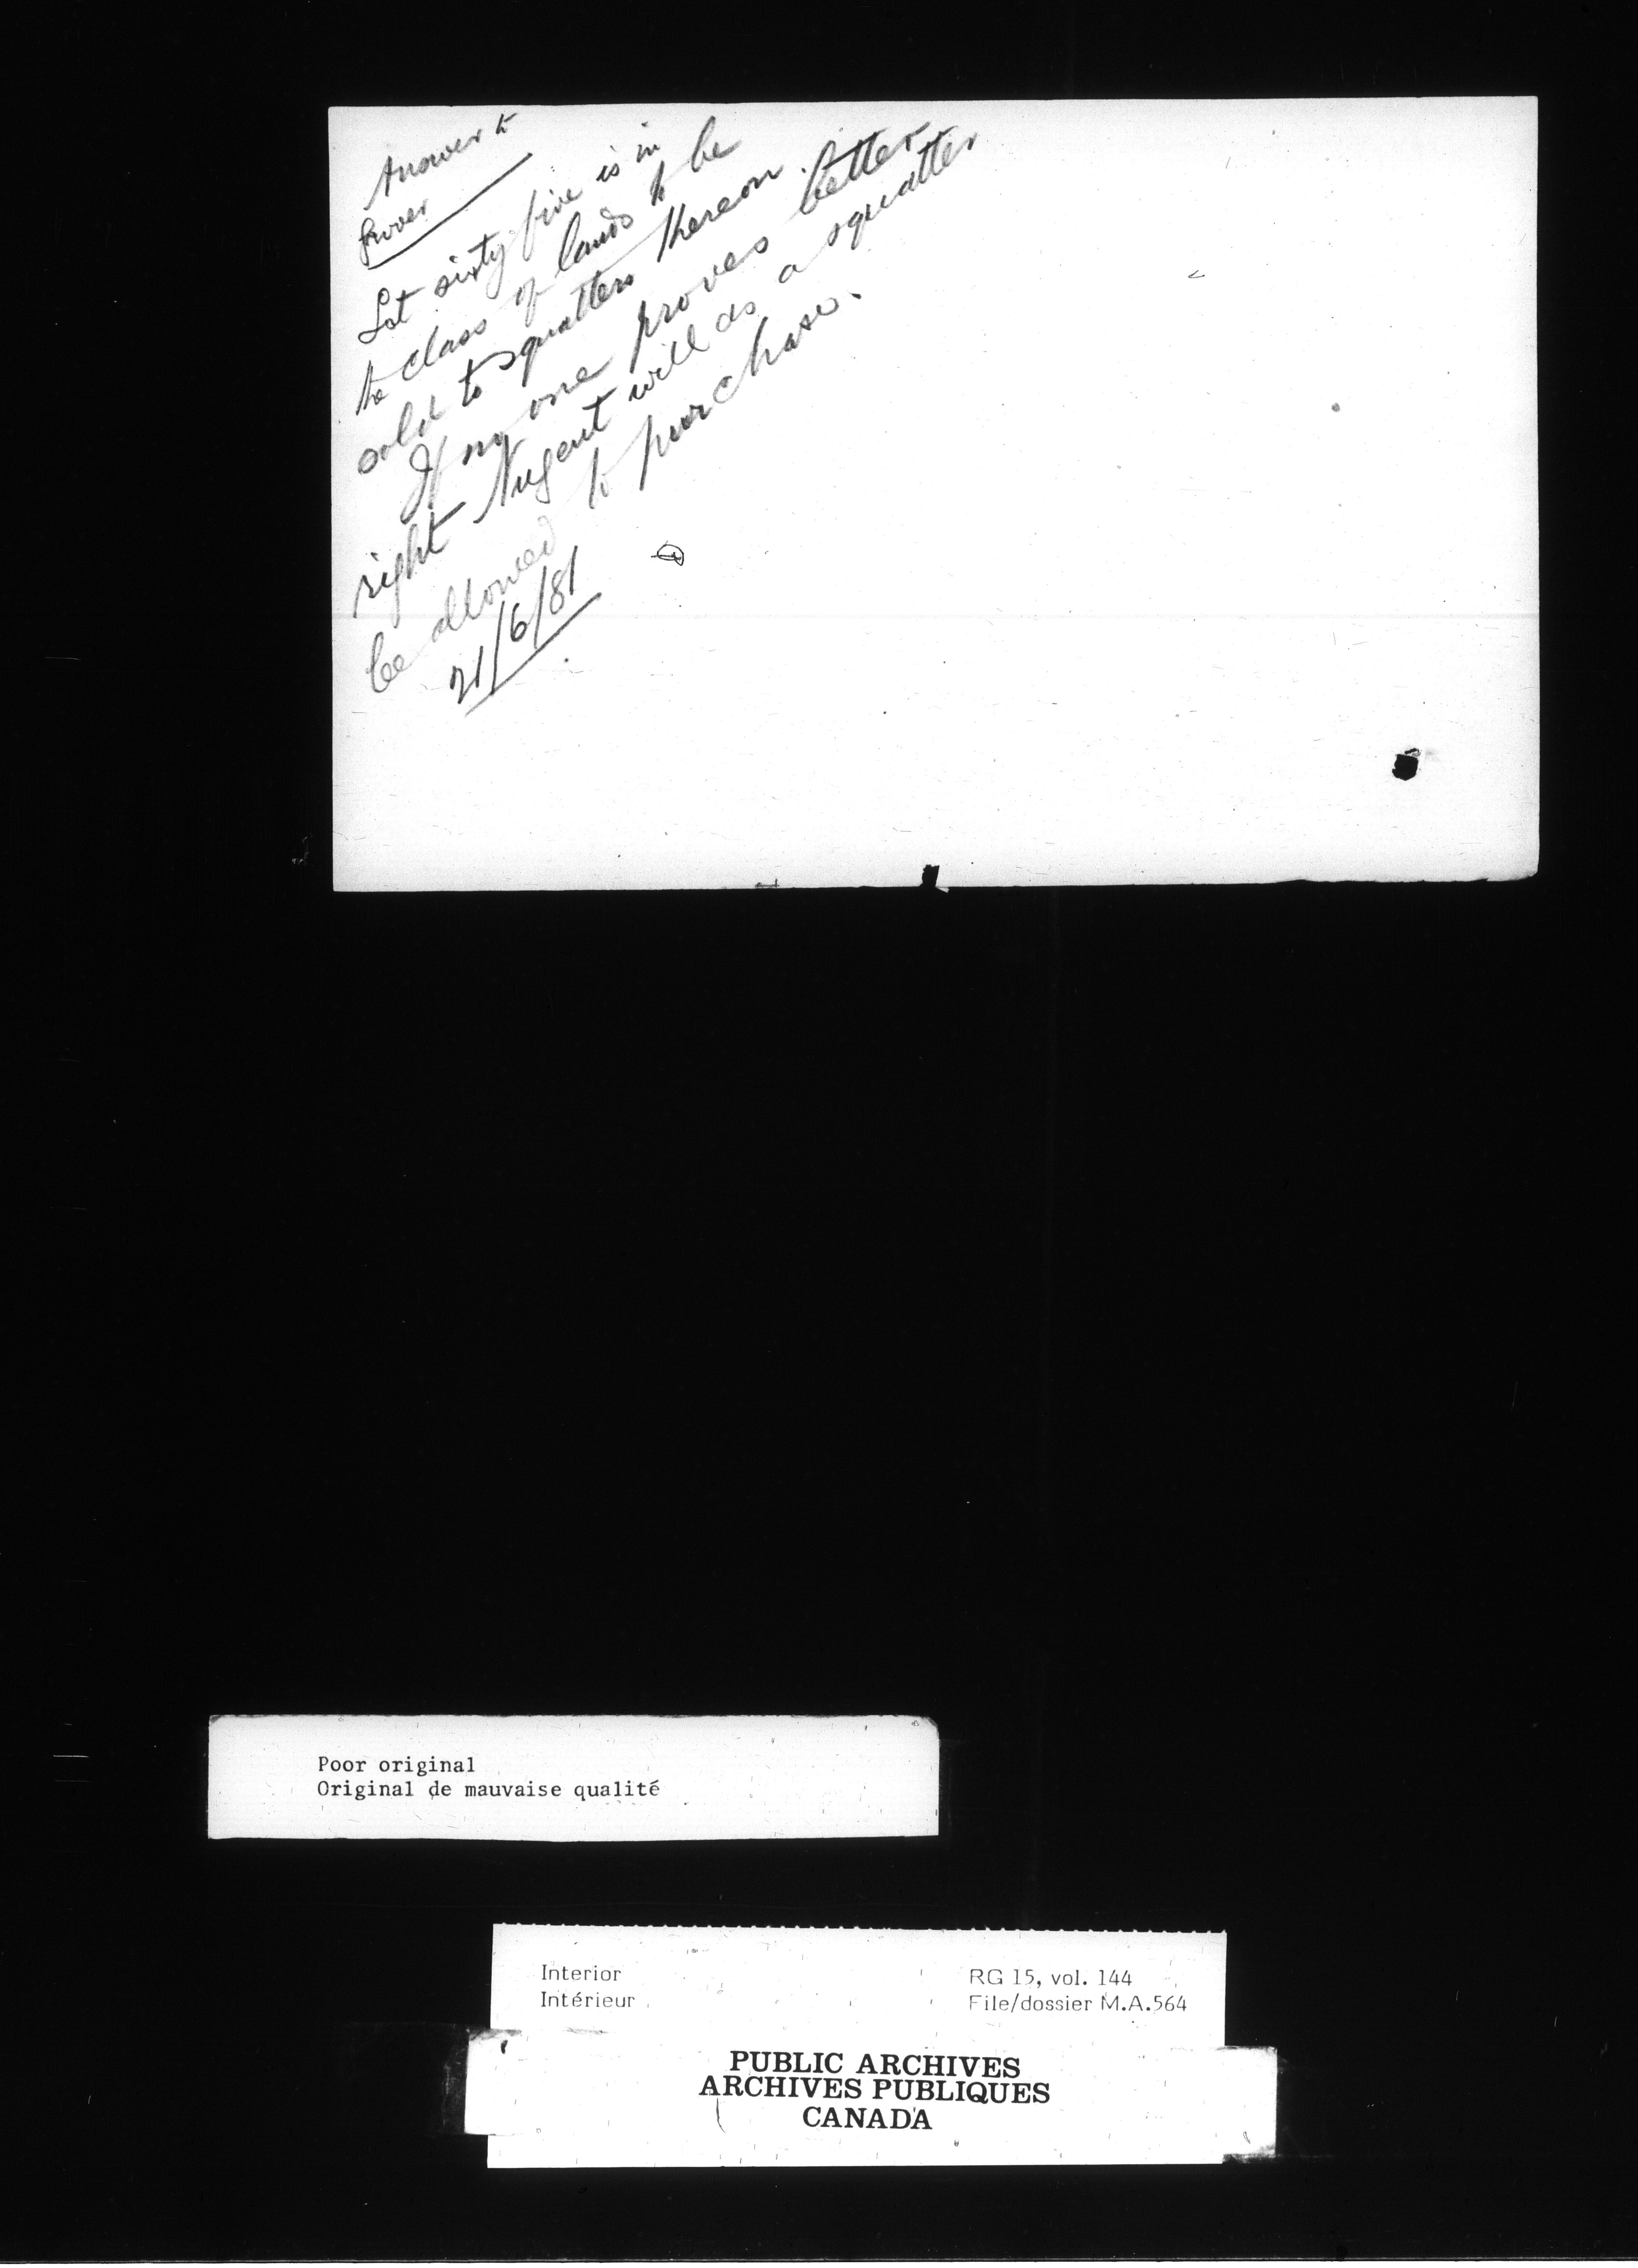 Answer to
Lot sixty five is in
the class of lands to be
sold to squatters thereon.
If no one proves better
right Nugent will as a squatter
be allowed to purchase.
21/6/81
Poor original
Original de mauvaise qualité
Interior
Intérieur
RG 15, vol. 144
File/dossier M.A.564
PUBLIC ARCHIVES
ARCHIVES PUBLIQUES
CANADA